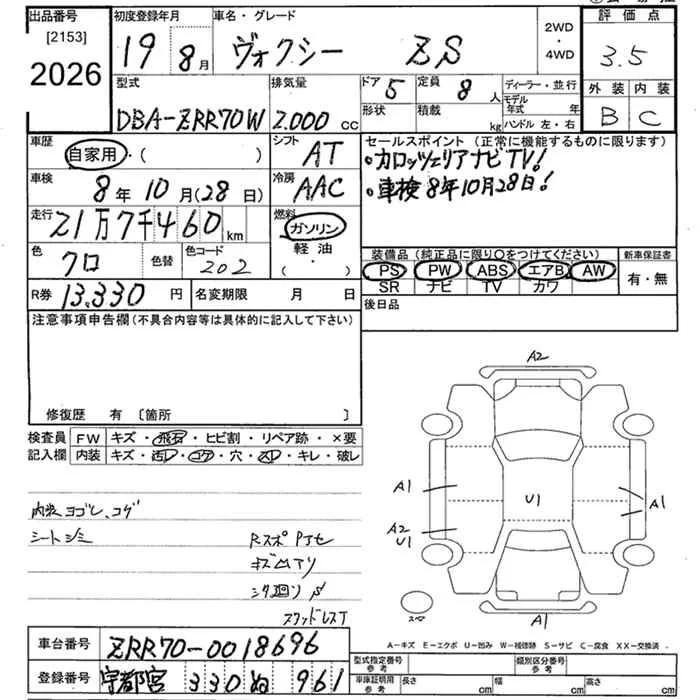 出品番号 初度登録年月 車名・グレード 2WD・4WD 評価点
[2153]
2026
19 8月 ヴォクシー ZS 3.5
型式 排気量 ドア 定員 ディーラー・並行 外装 内装
DBA-ZRR70W 2,000cc 5 8人 モデル年式 年 B C
形状 積載 kg ハンドル 左・右
車歴 自家用・( ) シフト AT セールスポイント(正常に機能するものに限ります)
・カロッツェリアナビTV!
車検 8年10月(28日) 冷房 AAC ・車検8年10月28日!
走行 21万7千460km 燃料 ガソリン 軽油・( )
色 クロ 色替 色コード 202
装備品(純正品に限り〇をつけてください) 新車保証書
PS PW ABS エアB AW 有・無
SR ナビ TV カワ
R券 13,330円 名変期限 月 日 後日品
注意事項申告欄(不具合内容等は具体的に記入して下さい)
修復歴 有〔箇所 〕
検査員記入欄 FW キズ・飛石・ヒビ割・リペア跡・×要
内装 キズ・汚レ・コゲ・穴・スレ・キレ・破レ
内装ヨゴレ、コゲ
シートシミ
A2
A1 U1 A1
A2
U1
A1
A-キズ E-エクボ U-凹み W-補修跡 S-サビ C-腐食 XX-交換済
車台番号 ZRR70-0018696
型式指定番号 参考 類別区分番号 参考
登録番号 宇都宮 330 ぬ 961
車庫証明用 参考 長さ cm 幅 cm 高さ cm